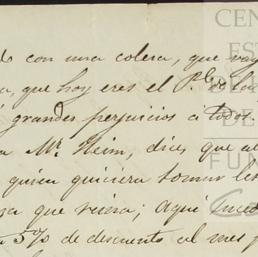 do con una colera, que vay
a, que hoy eres el P.te de los
grandes perjuicios a todos.
a Mr. Heim, dices que al
quien quiciera tomar let
sa que viera; aquí
5% de descuento al mes p
CEN
ES
DE
FUN